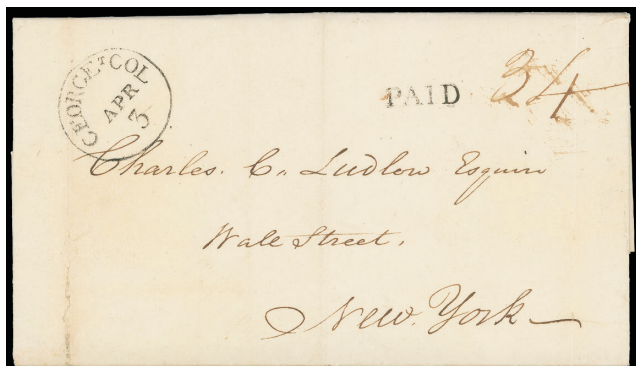 GEORGET COL
APR
3
PAID 34
Charles. C. Ludlow Esquire
Wall Street.
New. York